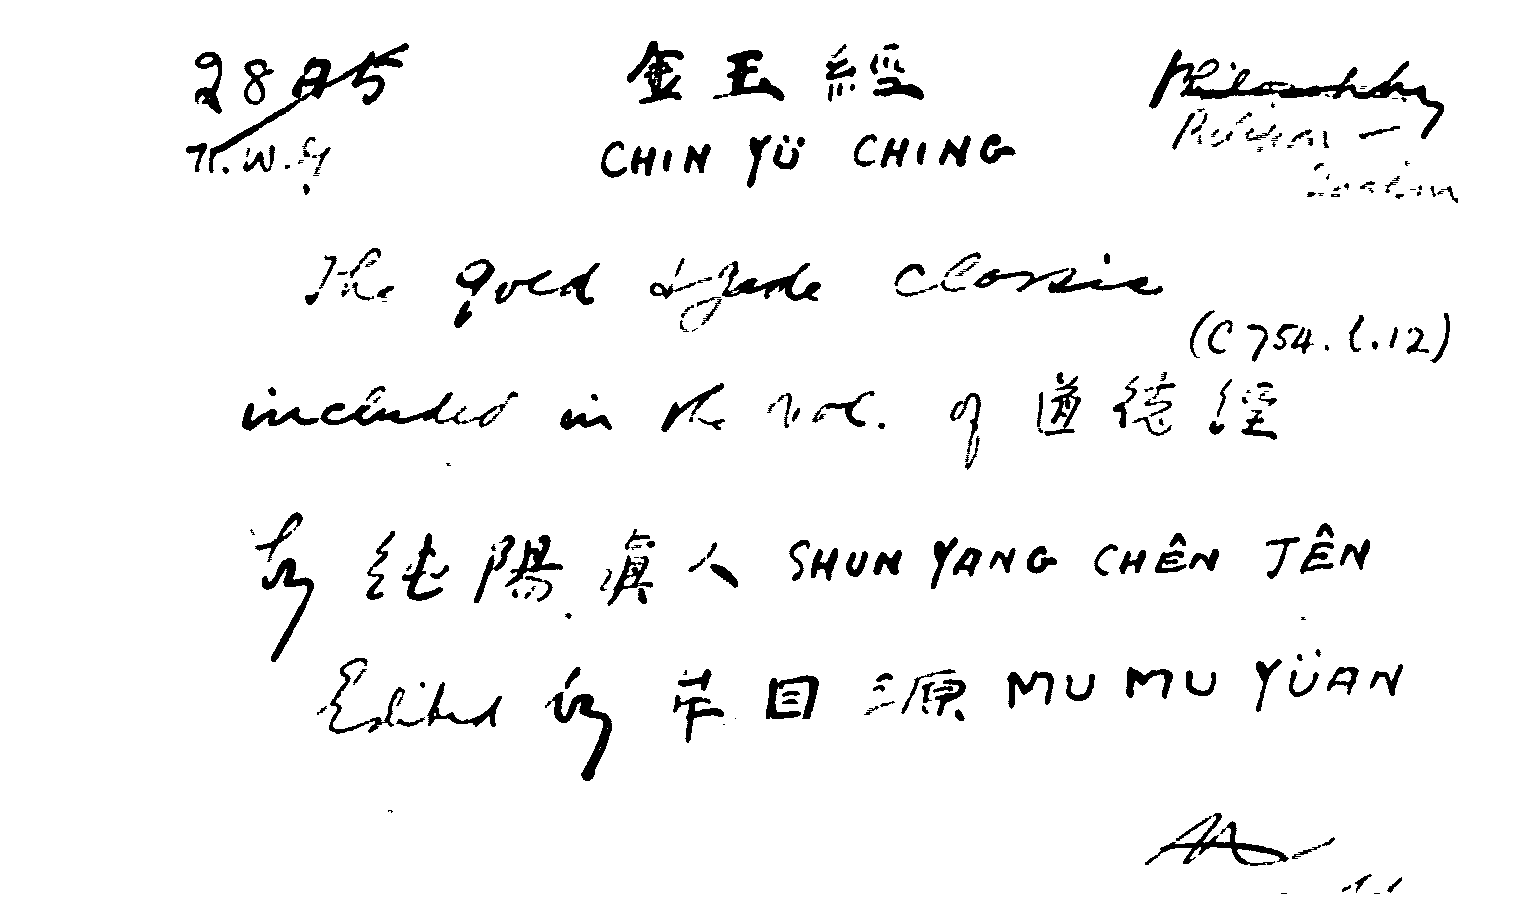 2875 金玉經 Philosophy
CHIN YÜ CHING Religion —
Taoism
The gold & Jade classic
(C 754. l.12)
included in the vol. of 道德經
by 純陽真人 SHUN YANG CHÊN JÊN
Edited by 目源 MU MU YÜAN